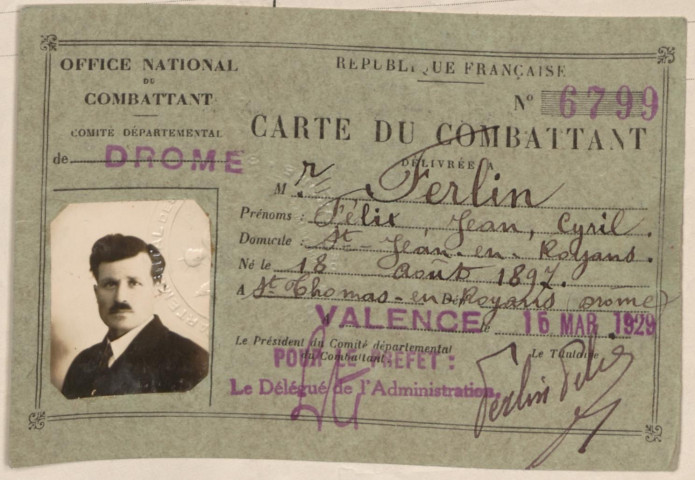 OFFICE NATIONAL
DU
COMBATTANT
COMITÉ DÉPARTEMENTAL
de DROME
REPUBLIQUE FRANÇAISE
N° 6799
CARTE DU COMBATTANT
DÉLIVRÉE A
M r Ferlin
Prénoms : Félix, Jean, Cyril.
Domicile : St-Jean-en-Royans.
Né le 18 Août 1897.
A St Thomas-en-Royans (Drôme)
VALENCE, le 16 MAR 1929
Le Président du Comité départemental
du Combattant
POUR LE PREFET :
Le Délégué de l'Administration,
Le Titulaire
Ferlin Félix